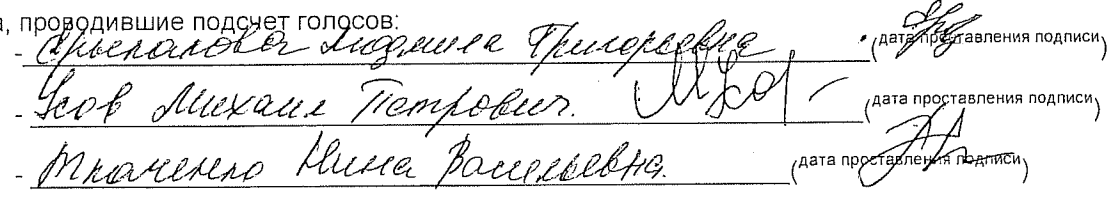 а, проводившие подсчет голосов:
- Людмила Григорьевна (дата проставления подписи)
- Усов Михаил Петрович. (дата проставления подписи)
- Ткаченко Нина Васильевна. (дата проставления подписи)